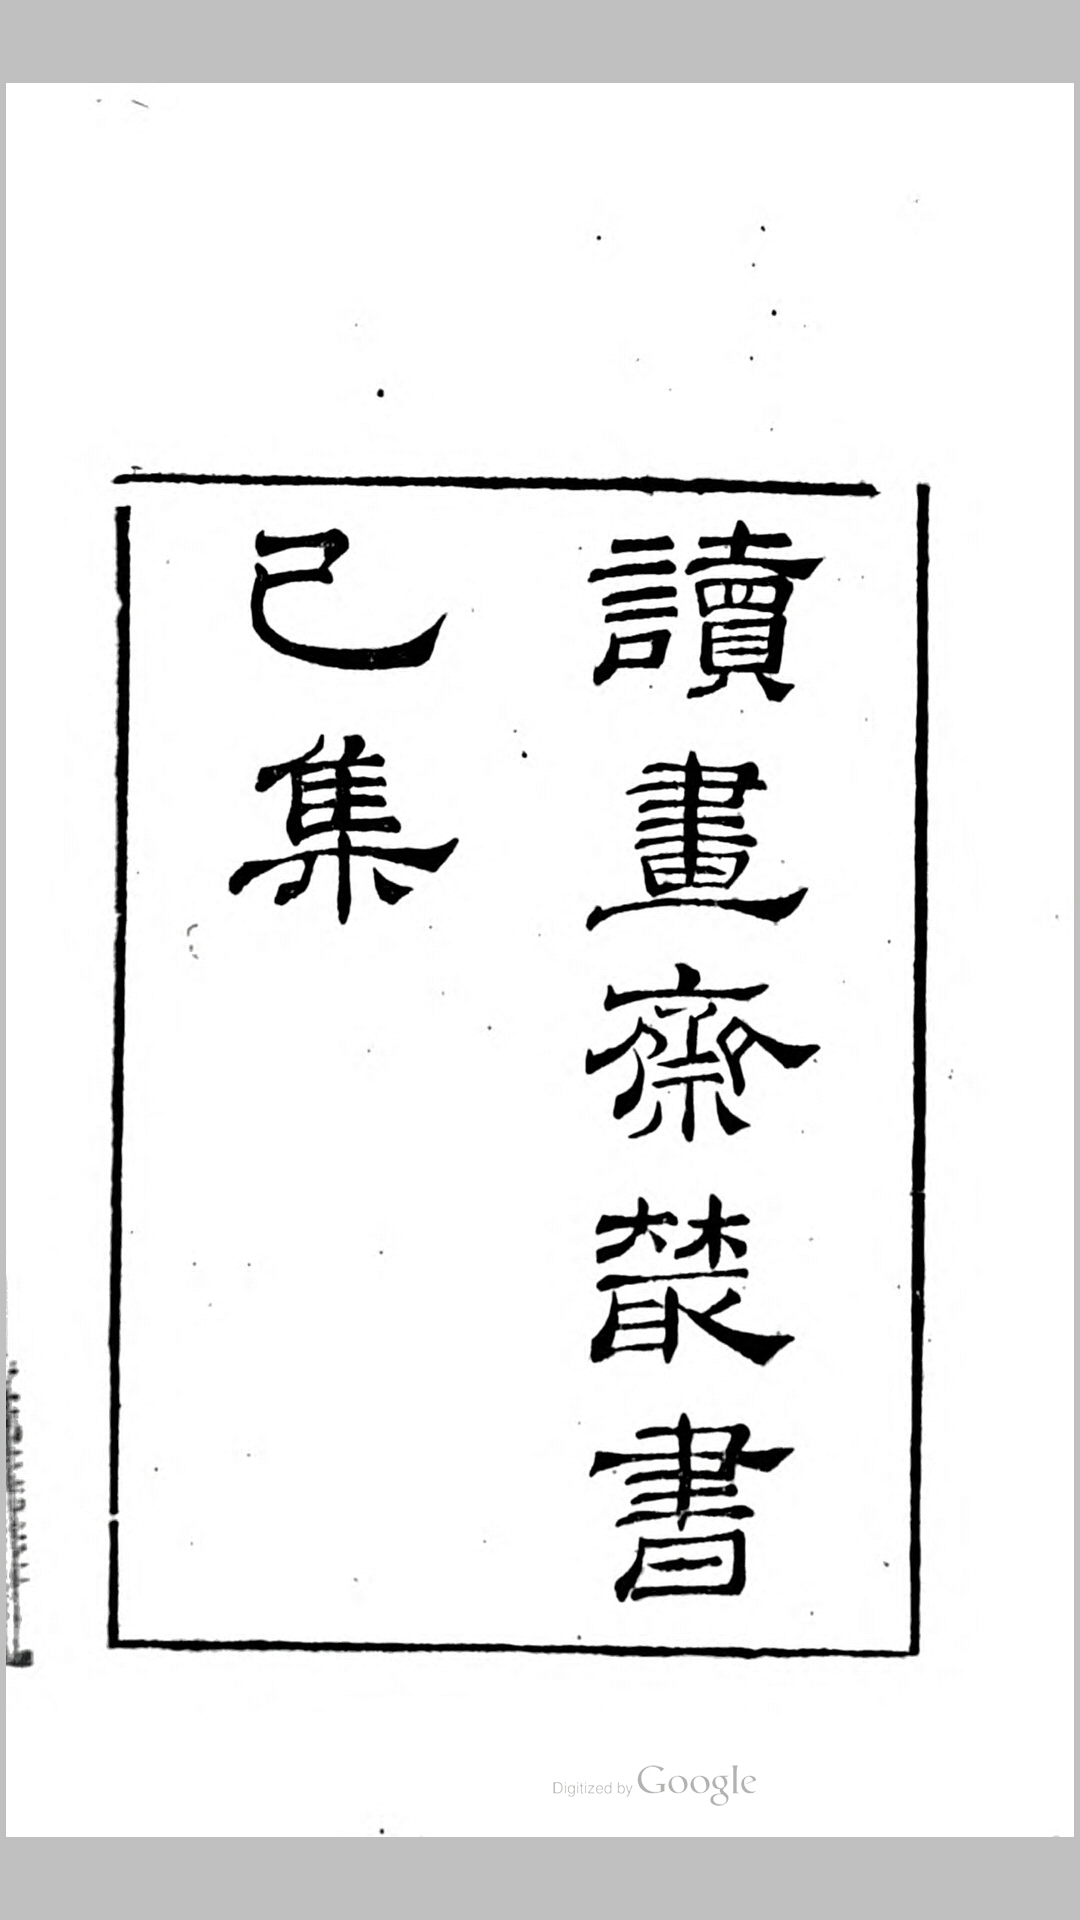 讀畫齋叢書
己集
Digitized by Google